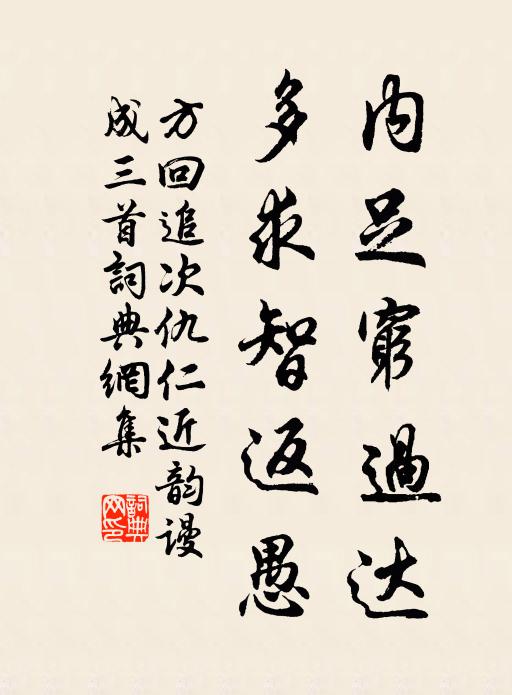 内足窮過达
多求智返愚
方回追次仇仁近韵谩
成三首詞典網集
詞典网印